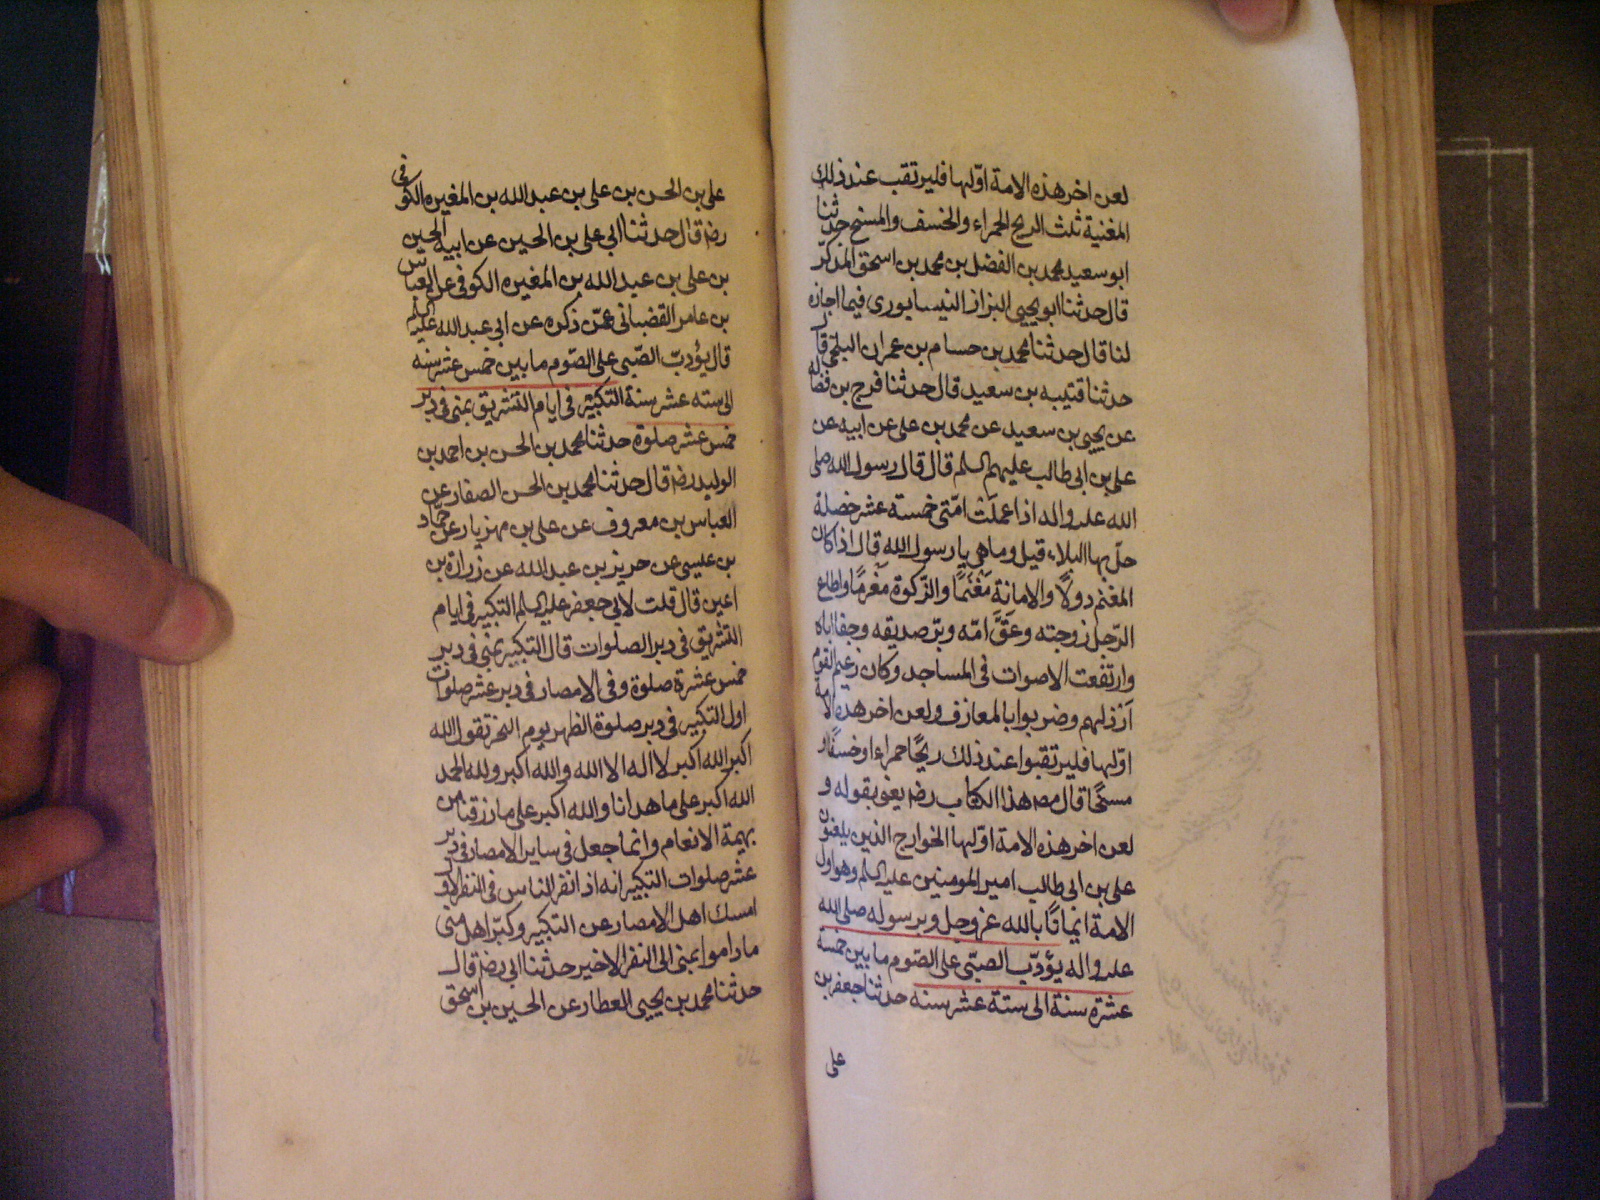 لعن اخر هذه الامة اوّلها فليرتقب عند ذلك
المغنية ثلث الريح الحمراء والخسف والمسخ حدثنا
ابو سعيد محمد بن الفضل بن محمد بن اسحق المذكّر
قال حدثنا ابو يحيى البزاز النيسابوري فيما اجازه
لنا قال حدثنا محمد بن حسام بن عمران البلخي قال
حدثنا قتيبه بن سعيد قال حدثنا فرج بن فضاله
عن يحيى بن سعيد عن محمد بن على عن ابيه عن
على بن ابى طالب عليهم السلم قال قال رسول الله صلى
الله عليه واله اذا عملَتْ امّتى خمسة عشر خصلة
حلّ بها البلاء قيل وما هى يا رسول الله قال اذا كان
المغنم دولًا والامانة مَغْنَمًا والزّكوة مَغْرمًا واطاع
الرّجل زوجته وعَقَّ امّه وبرّ صديقه وجفا اباه
وارتفعت الاصوات فى المساجد وكان زعيم القوم
اَرذلهم وضربوا بالمعازف ولعن اخر هذه الامة
اوّلها فليرتقبوا عند ذلك ريحًا حمراء او خسفًا او
مسخًا قال مصـ هذا الكتاب رضـ يعنى بقوله و
لعن اخر هذه الامة اوّلها الخوارج الذين يلعنون
على بن ابى طالب امير المومنين عليه السلم وهو اول
الامة ايمانًا بالله عزوجل وبرسوله صلى الله
عليه واله يؤدّب الصبّى على الصّوم ما بين خمسة
عشرة سنة الى ستة عشر سنه حدثنا جعفر بن
على
على بن الحسن بن على بن عبد الله بن المغيره الكوفى
رضـ قال حدثنا ابى على بن الحسين عن ابيه الحسين
بن على بن عبد الله بن المغيره الكوفى عن العباس
بن عامر القضبانى عمّن ذكره عن ابى عبد الله عليه السلم
قال يؤدبّ الصّبى على الصّوم ما بين خمس عشر سنه
الى سته عشر سنة التكبير فى ايام التشريق بمنى فى دبر
خمس عشر صلوة حدثنا محمد بن الحسن بن احمد بن
الوليد رضـ قال حدثنا محمد بن الحسن الصفار عن
العباس بن معروف عن على بن مهزيار عن حمّاد
بن عيسى عن حريز بن عبد الله عن زرارة بن
اعين قال قلت لابى جعفر عليه السلم التكبير فى ايام
التشريق فى دبر الصلوات قال التكبير بمنى فى دبر
خمس عشرة صلوة وفى الامصار فى دبر عشر صلوات
اول التكبير فى دبر صلوة الظهر يوم النحر تقول الله
اكبر الله اكبر لا اله الا الله والله اكبر ولله الحمد
الله اكبر على ما هدانا والله اكبر على ما رزقنا من
بهيمة الانعام وانما جعل فى ساير الامصار فى دبر
عشر صلوات التكبير انه اذا نفر الناس فى النفر الاول
امسك اهل الامصار عن التكبير وكبّر اهل منى
ما داموا بمنى الى النفر الاخير حدثنا ابى رضـ قال
حدثنا محمد بن يحيى العطار عن الحسين بن اسحق